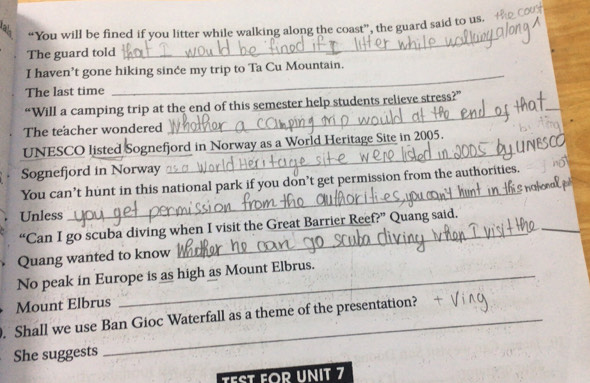 "You will be fined if you litter while walking along the coast", the guard said to us. the coast
The guard told that I would be fined if I litter while walking along
I haven't gone hiking since my trip to Ta Cu Mountain.
The last time
"Will a camping trip at the end of this semester help students relieve stress?"
The teacher wondered Whether a camping trip would at the end of that
UNESCO listed Sognefjord in Norway as a World Heritage Site in 2005.
Sognefjord in Norway as a World Heritage site were listed in 2005 by UNESCO
You can't hunt in this national park if you don't get permission from the authorities.
Unless you get permission from the authorities, you can't hunt in this national
"Can I go scuba diving when I visit the Great Barrier Reef?" Quang said.
Quang wanted to know Whether he can go scuba diving when I visit the
No peak in Europe is as high as Mount Elbrus.
Mount Elbrus
. Shall we use Ban Gioc Waterfall as a theme of the presentation? + Ving
She suggests
TEST FOR UNIT 7